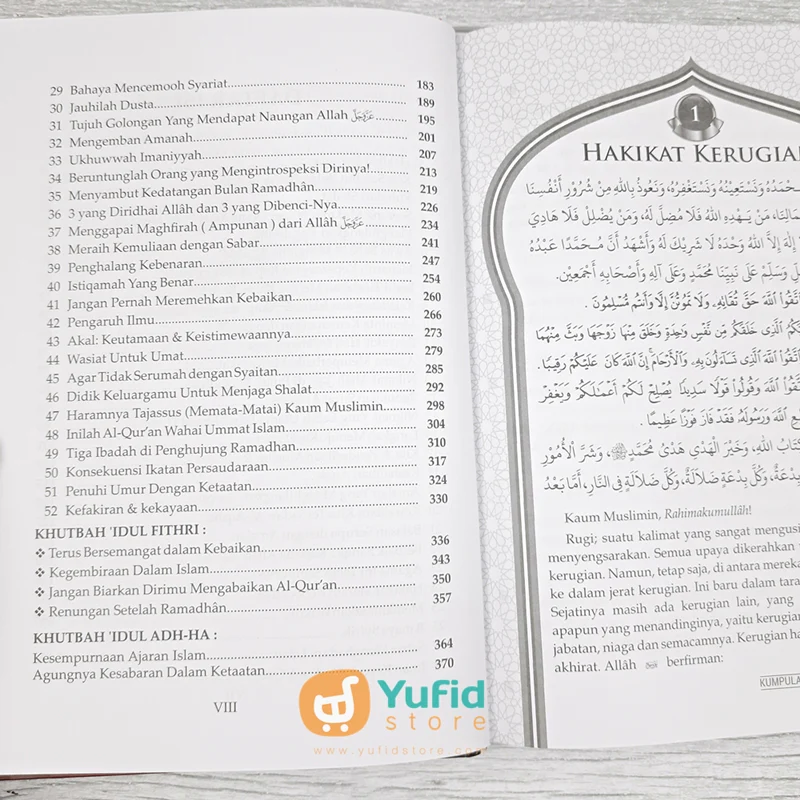 29 Bahaya Mencemooh Syariat........ 183
30 Jauhilah Dusta........ 189
31 Tujuh Golongan Yang Mendapat Naungan Allah ﷻ........ 195
32 Mengemban Amanah........ 201
33 Ukhuwwah Imaniyyah........ 207
34 Beruntunglah Orang yang Mengintrospeksi Dirinya!........ 213
35 Menyambut Kedatangan Bulan Ramadhân........ 219
36 3 yang Diridhai Allâh dan 3 yang Dibenci-Nya........ 226
37 Menggapai Maghfirah ( Ampunan ) dari Allâh........ 234
38 Meraih Kemuliaan dengan Sabar........ 241
39 Penghalang Kebenaran........ 247
40 Istiqamah Yang Benar........ 254
41 Jangan Pernah Meremehkan Kebaikan........ 260
42 Pengaruh Ilmu........ 266
43 Akal: Keutamaan & Keistimewaannya........ 273
44 Wasiat Untuk Umat........ 279
45 Agar Tidak Serumah dengan Syaitan........ 285
46 Didik Keluargamu Untuk Menjaga Shalat........ 292
47 Haramnya Tajassus (Memata-Matai) Kaum Muslimin........ 298
48 Inilah Al-Qur'an Wahai Ummat Islam........ 304
49 Tiga Ibadah di Penghujung Ramadhan........ 310
50 Konsekuensi Ikatan Persaudaraan........ 317
51 Penuhi Umur Dengan Ketaatan........ 324
52 Kefakiran & kekayaan........ 330
KHUTBAH 'IDUL FITHRI :
❖ Terus Bersemangat dalam Kebaikan........ 336
❖ Kegembiraan Dalam Islam........ 343
❖ Jangan Biarkan Dirimu Mengabaikan Al-Qur'an........ 350
❖ Renungan Setelah Ramadhân........ 357
KHUTBAH 'IDUL ADH-HA :
Kesempurnaan Ajaran Islam........ 364
Agungnya Kesabaran Dalam Ketaatan........ 370
VIII
1
HAKIKAT KERUGIA
نَحْمَدُهُ وَنَسْتَعِيْنُهُ وَنَسْتَغْفِرُهُ، وَنَعُوذُ بِاللهِ مِنْ شُرُورِ أَنْفُسِنَا
مَالِنَا، مَنْ يَهْدِهِ اللهُ فَلَا مُضِلَّ لَهُ، وَمَنْ يُضْلِلْ فَلَا هَادِيَ
إِلَهَ إِلَّا اللهُ وَحْدَهُ لَا شَرِيْكَ لَهُ وَأَشْهَدُ أَنَّ مُحَمَّدًا عَبْدُهُ
وَسَلِّمْ عَلَى نَبِيِّنَا مُحَمَّدٍ وَعَلَى آلِهِ وَأَصْحَابِهِ أَجْمَعِيْنَ.
اتَّقُوا اللَّهَ حَقَّ تُقَاتِهِ، وَلَا تَمُوتُنَّ إِلَّا وَأَنْتُمْ مُسْلِمُونَ .
الَّذِي خَلَقَكُمْ مِنْ نَفْسٍ وَاحِدَةٍ وَخَلَقَ مِنْهَا زَوْجَهَا وَبَثَّ مِنْهُمَا
اتَّقُوا اللَّهَ الَّذِي تَسَاءَلُونَ بِهِ، وَالْأَرْحَامَ إِنَّ اللَّهَ كَانَ عَلَيْكُمْ رَقِيبًا.
اتَّقُوا اللَّهَ وَقُولُوا قَوْلًا سَدِيدًا يُصْلِحْ لَكُمْ أَعْمَالَكُمْ وَيَغْفِرْ
اللَّهَ وَرَسُولَهُ فَقَدْ فَازَ فَوْزًا عَظِيمًا .
كِتَابُ اللهِ، وَخَيْرَ الْهَدْيِ هَدْيُ مُحَمَّدٍ ﷺ، وَشَرَّ الْأُمُوْرِ
بِدْعَةٌ، وَكُلَّ بِدْعَةٍ ضَلَالَةٌ، وَكُلَّ ضَلَالَةٍ فِي النَّارِ، أَمَّا بَعْدُ
Kaum Muslimin, Rahimakumullâh!
Rugi; suatu kalimat yang sangat mengusi
menyengsarakan. Semua upaya dikerahkan
kerugian. Namun, tetap saja, di antara mereka
ke dalam jerat kerugian. Ini baru dalam tara
Sejatinya masih ada kerugian lain, yang
apapun yang menandinginya, yaitu kerugian
jabatan, niaga dan semacamnya. Kerugian ha
akhirat. Allâh berfirman:
KUMPULA
Yufid
store
www.yufidstore.com